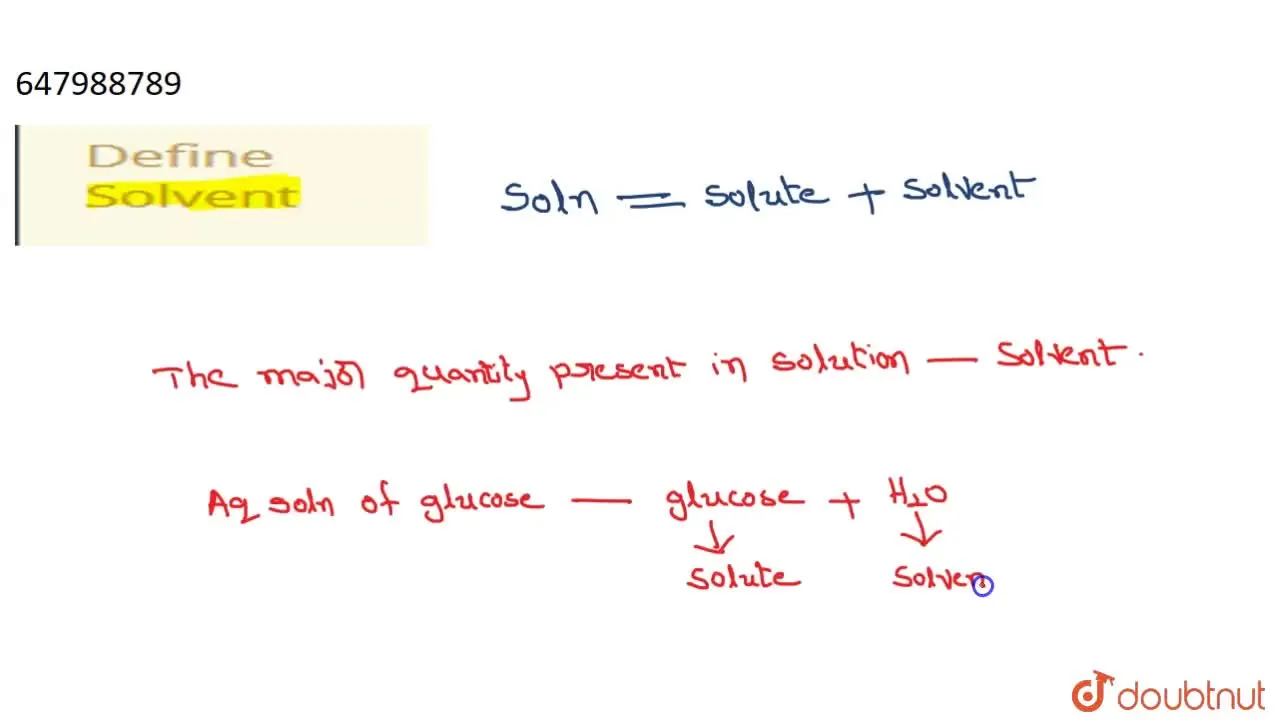 647988789
Define
Solvent
Soln = Solute + Solvent
The major quantity present in solution — Solvent.
Aq soln of glucose — glucose + H2O
↓ ↓
Solute Solven
doubtnut